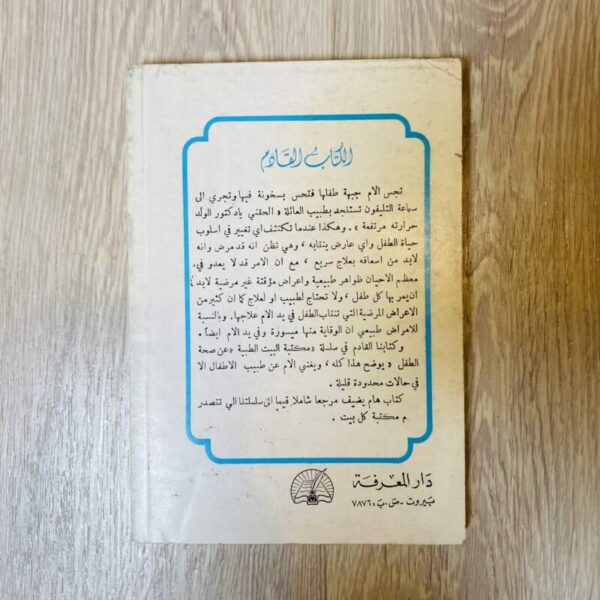 الكتاب القادم
تجس الام جبهة طفلها فتحس بسخونة فيها وتجري الى
سماعة التليفون تستنجد بطبيب العائلة « الحقني يا دكتور الولد
حرارته مرتفعة » . وهكذا عندما تكتشف اي تغيير في اسلوب
حياة الطفل واي عارض ينتابه ، وهي تظن انه قد مرض وانه
لابد من اسعافه بعلاج سريع ، مع ان الامر قد لا يعدو في
معظم الاحيان ظواهر طبيعية واعراض مؤقتة غير مرضية لابد
ان يمر بها كل طفل ، ولا تحتاج لطبيب او لعلاج كما ان كثير من
الاعراض المرضية التي تنتاب الطفل في يد الام علاجها . وبالنسبة
للامراض طبيعي ان الوقاية منها ميسورة وفي يد الام ايضاً .
وكتابنا القادم في سلسلة « مكتبة البيت الطبية » عن صحة
الطفل « يوضح هذا كله ، ويغني الام عن طبيب الاطفال الا
في حالات محدودة قليلة .
كتاب هام يضيف مرجعا شاملا قيما الى سلسلتنا التي تتصدر
م مكتبة كل بيت .
دار المعرفة
بيروت - ص . ب : ٧٨٧٦